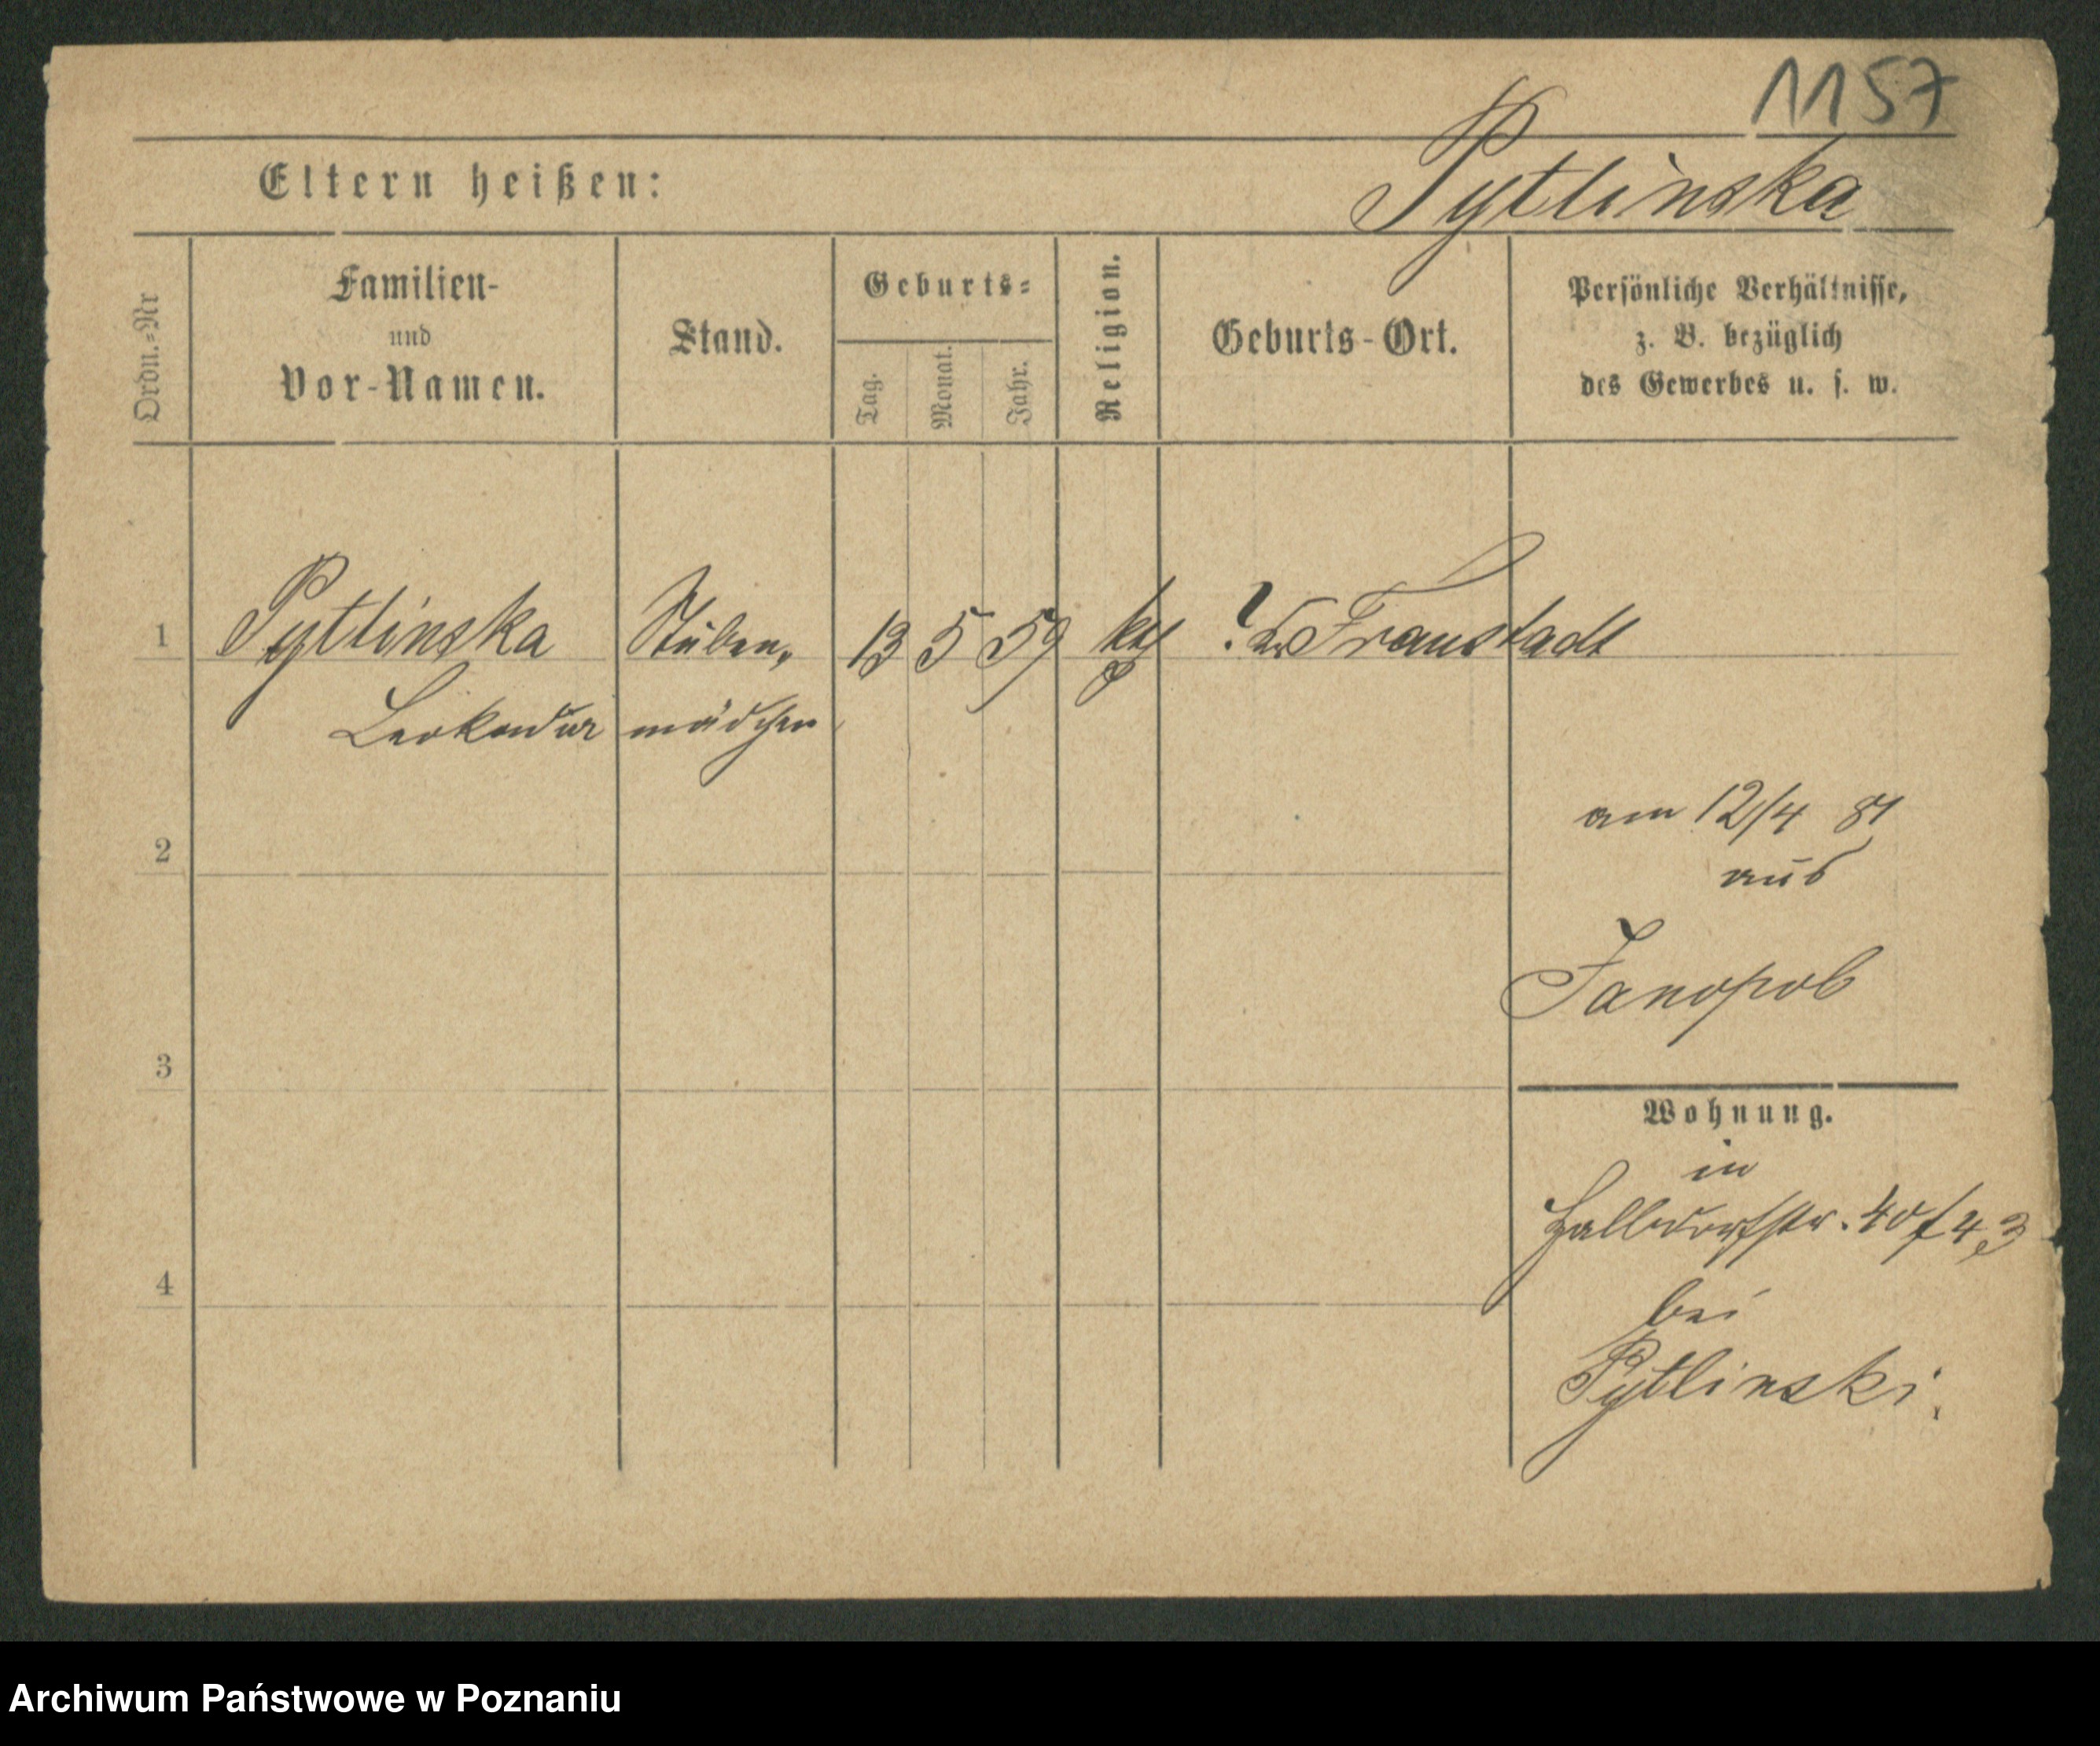 1157
Eltern heißen:
Pytlinska
Ordn.-Nr
Familien-
und
Vor-Namen.
Stand.
Geburts-
Tag.
Monat.
Jahr.
Religion.
Geburts-Ort.
Persönliche Verhältnisse,
z. B. bezüglich
des Gewerbes u. s. w.
1 Pytlinska Stuben, 13 5 59 kth ? Kr Fraustadt
Leokadia mädchen
am 12/4 81
aus
2
3
Wohnung.
in
Halbdorfstr. 40
4
bei
Pytlinski.
Archiwum Państwowe w Poznaniu